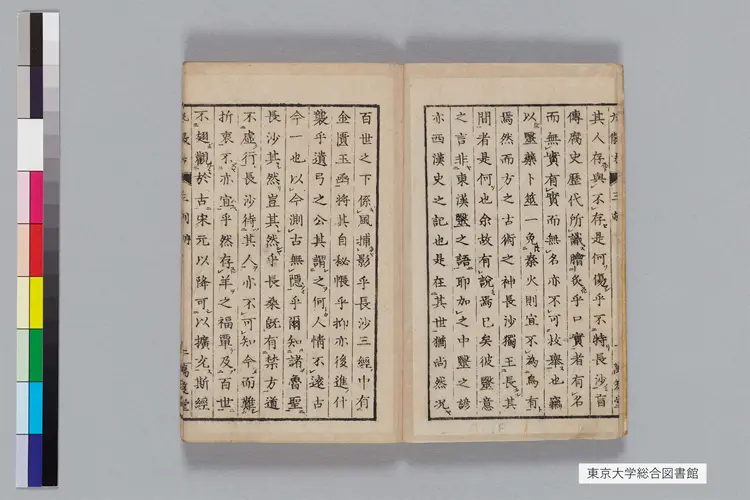 其人存與不存是何傷乎不特長沙盲
傳腐史歷代所識膾炙乎口實者有名
而無實有實而無名亦不可枚舉也竊
以醫藥卜筮一免秦火則宜不為烏有
焉然而方之古術之神長沙獨王長其
間者是何也余故有說焉已矣彼醫意
之言非東漢醫之語耶加之中醫之諺
亦西漢史之記也是在其世猶尚然況
百世之下係風捕影乎長沙三經中有
金匱玉函將其自秘帳乎抑亦後進什
襲乎遺弓之公其謂之何人情不遠古
今一也以今測古無隱乎爾知諸魯聖
長沙其然豈其然乎長桑既有禁方道
不虛行長沙待其人亦不可知今而雖
折衷不亦宜乎然存羊之福覃及百世
不翅觀於古宋元以降可以擴充斯經
東京大学総合図書館